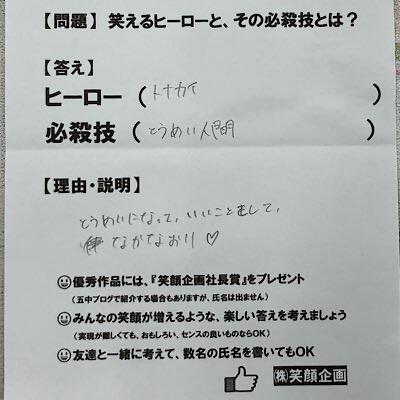 【問題】 笑えるヒーローと、その必殺技とは？
【答え】
ヒーロー （トナカイ）
必殺技 （とうめい人間）
【理由・説明】
とうめいになって、いいことをして、
なかなおり♡
優秀作品には、『笑顔企画社長賞』をプレゼント
（五中ブログで紹介する場合もありますが、氏名は出ません）
みんなの笑顔が増えるような、楽しい答えを考えましょう
（実現が難しくても、おもしろい、センスの良いものならOK）
友達と一緒に考えて、数名の氏名を書いてもOK
㈱笑顔企画